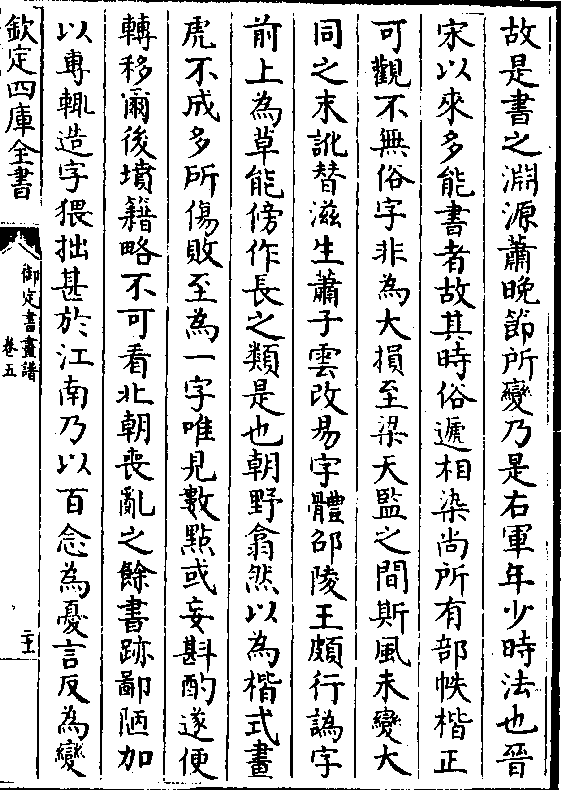 故是書之淵源蕭晚節所變乃是右軍年少時法也晉
宋以來多能書者故其時俗遞相染尚所有部帙楷正
可觀不無俗字非為大損至梁天監之間斯風未變大
同之末訛替滋生蕭子雲改易字體邵陵王頗行譌字
前上為草能傍作長之類是也朝野翕然以為楷式畫
虎不成多所傷敗至為一字唯見數點或妄斟酌遂便
轉移爾後墳籍略不可看北朝喪亂之餘書跡鄙陋加
以專輒造字猥拙甚於江南乃以百念為憂言反為變
欽定四庫全書
御定書畫譜
卷五